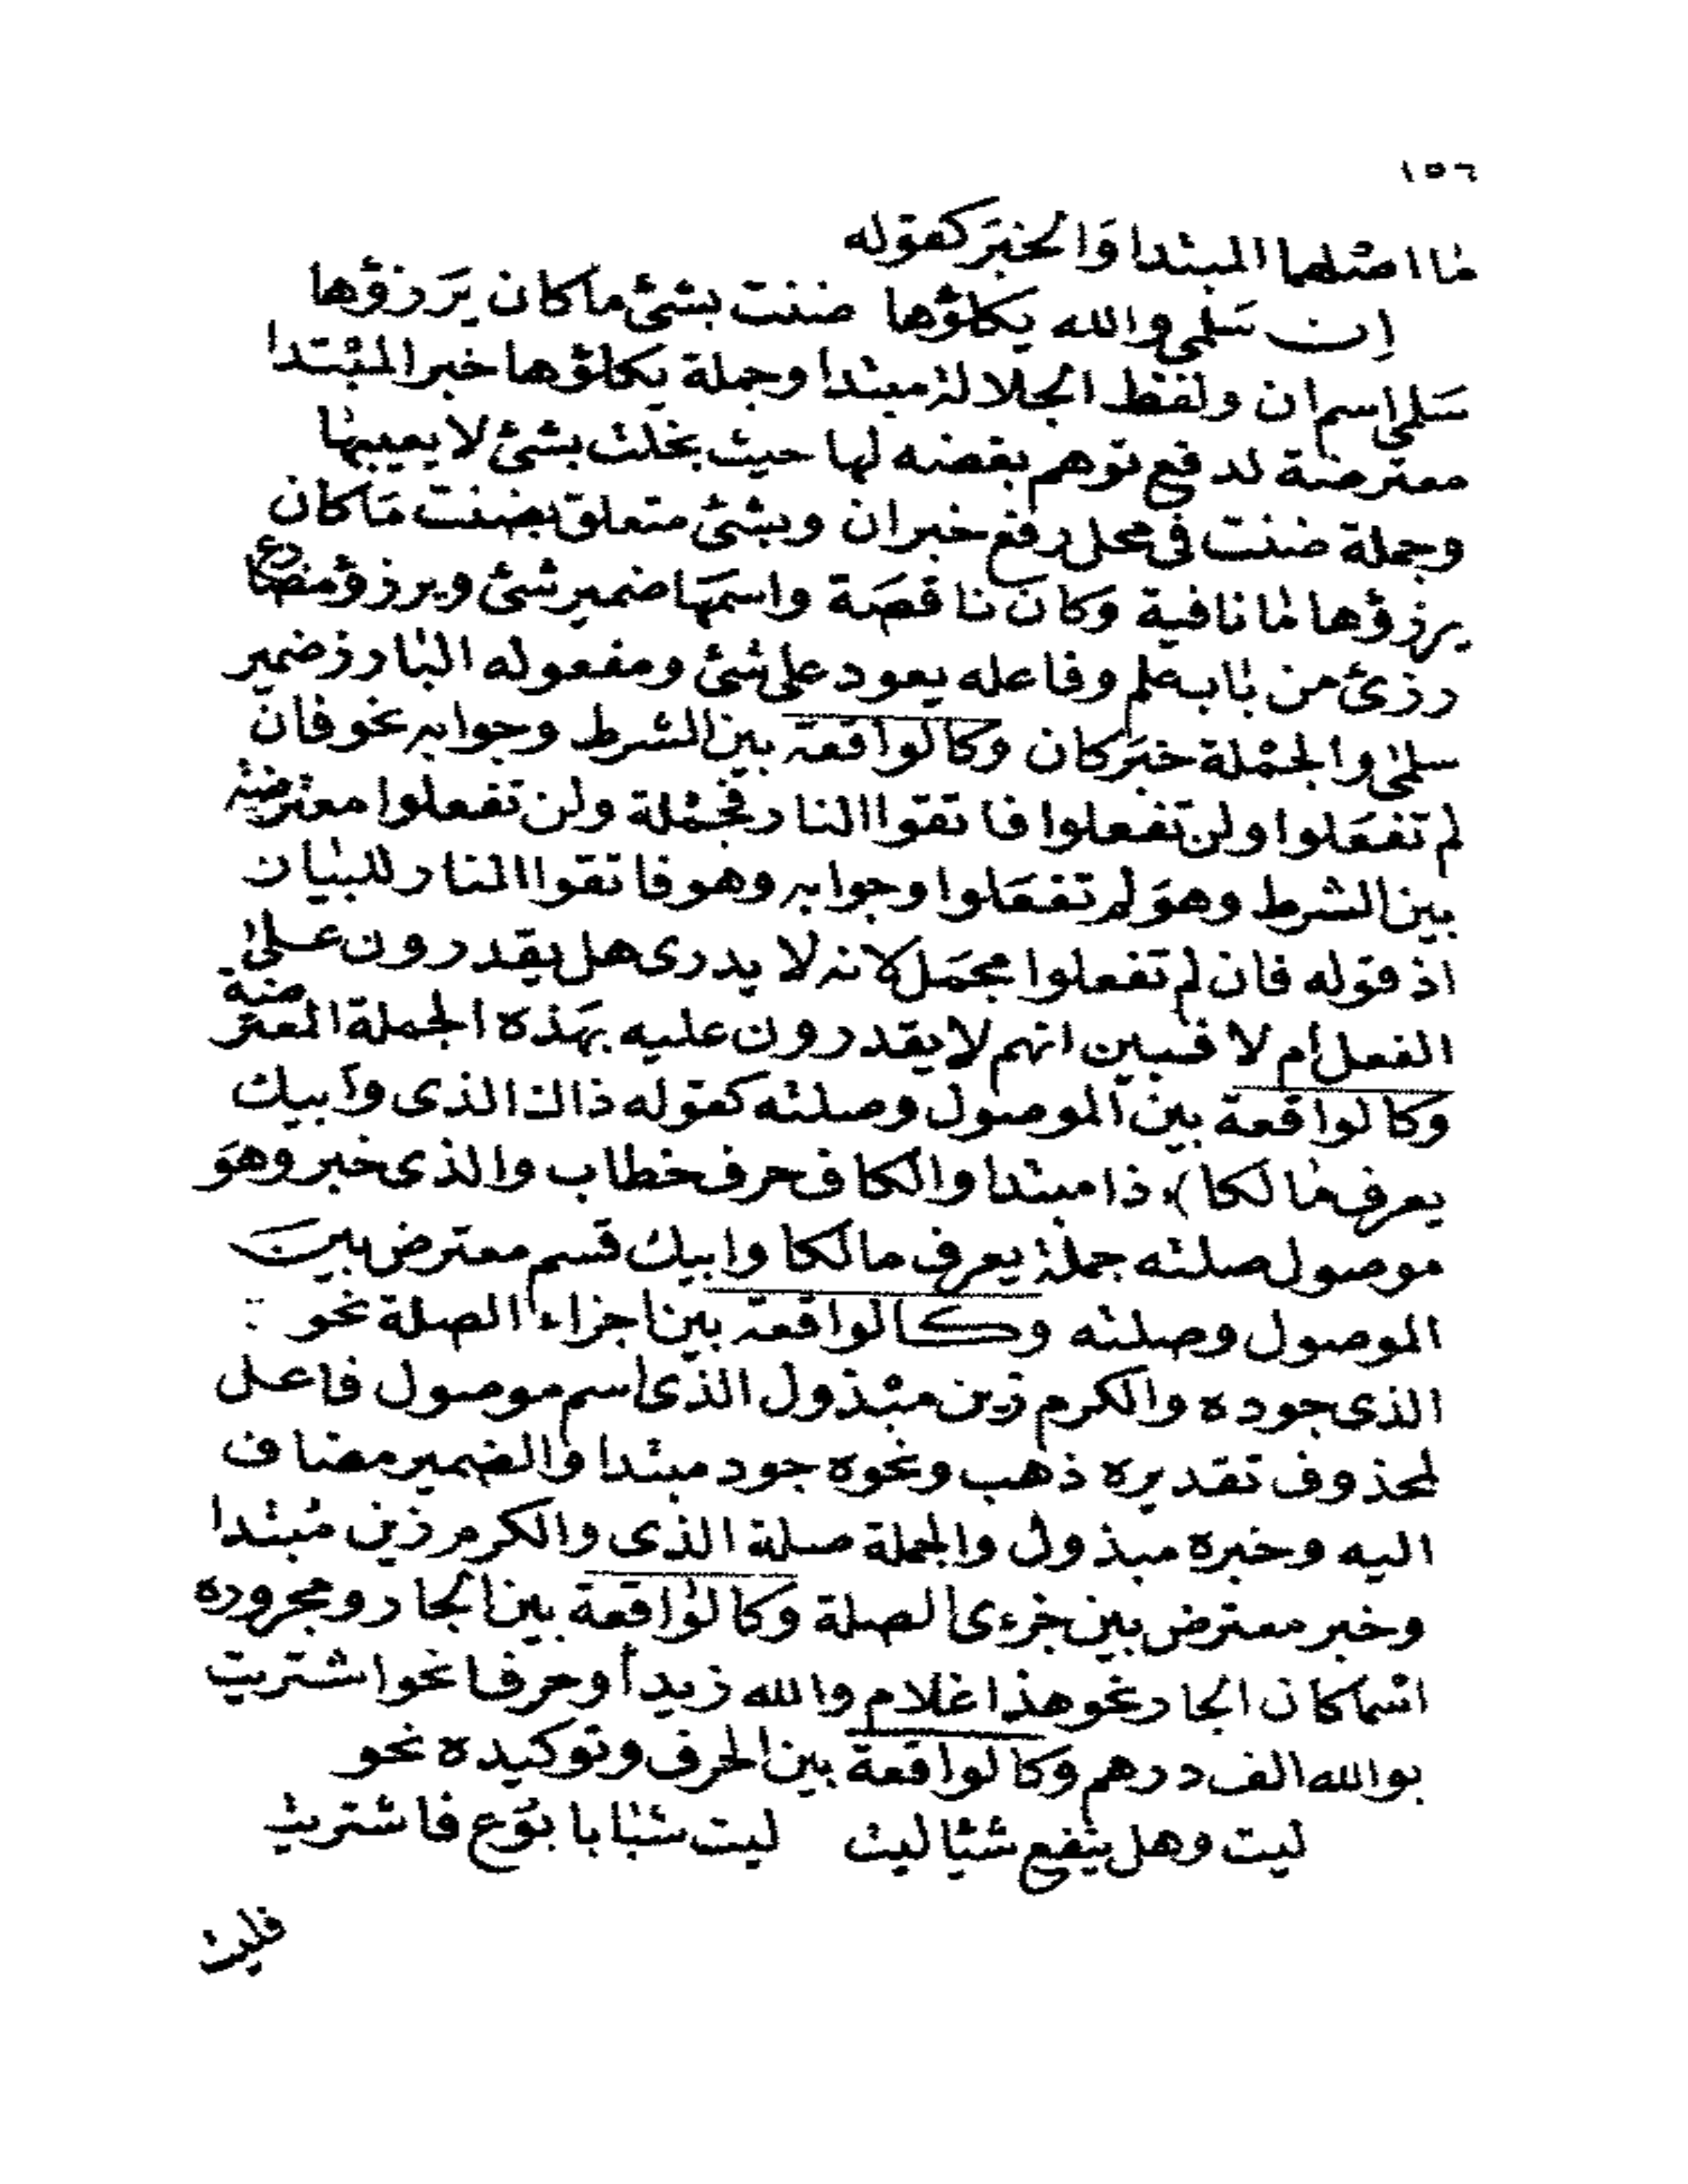 ١٥٦
ما اصلهما المبتدا وَالخبَر كقوله
اِن سَلمي والله يكلؤها ضننت بشئ ماكان يَرزؤها
سَلمي اسم ان ولفظ الجلالة مبتدا وجملة يكلؤها خبر المبتدا
معترضة لدفع توهم بغضه لها حيث بخلت بشئ لا يعيبها
وجملة ضننت في محل رفع خبر ان وبشئ متعلق بضننت مَا كان
يرزؤها ما نافية وَكان ناقصَة واسمهَا ضمير شئ ويرزؤ مضارع
رزئ من باب علم وفاعله يعود على شئ ومفعوله البارز ضمير
سلمى والجملة خبَر كان وكالواقعة بين الشرط وجوابه نحو فان
لم تفعَلوا ولن تفعلوا فاتقوا النار فجملة ولن تفعلوا معترضة
بين الشرط وهوَ لم تفعَلوا وجوابه وهو فاتقوا النار للبيان
اذ قوله فان لم تفعلوا مجمَل لانه لا يدرى هل يقدرون على
الفعل أم لا فبين انهم لا يقدرون عليه بهَذه الجملة المعترضة
وكالواقعة بين الموصول وصلته كقوله ذاك الذى وأبيك
يعرف مالكا) ذا مبتدا والكاف حرف خطاب والذى خبر وهوَ
موصول صلته جملة يعرف مالكا وابيك قسم معترض بين
الموصول وصلته وكالواقعة بين اجزاء الصلة نحو
الذى جوده والكرم زين مبذول الذى اسم موصول فاعل
لمحذوف تقديره ذهب ونحوه جود مبتدا والضمير مضاف
اليه وخبره مبذول والجملة صلة الذى والكرم زين مُبتدا
وخبر معترض بين جزءى الصلة وكالواقعة بين الجار ومجروره
اسما كان الجار نحو هذا غلام والله زيدأ وحرفا نحو اشتريت
بوالله الف درهم وكالواقعة بين الحرف وتوكيده نحو
ليت وهل ينفع شيا ليت ليت شبابا بوَع فاشتريت
فليت